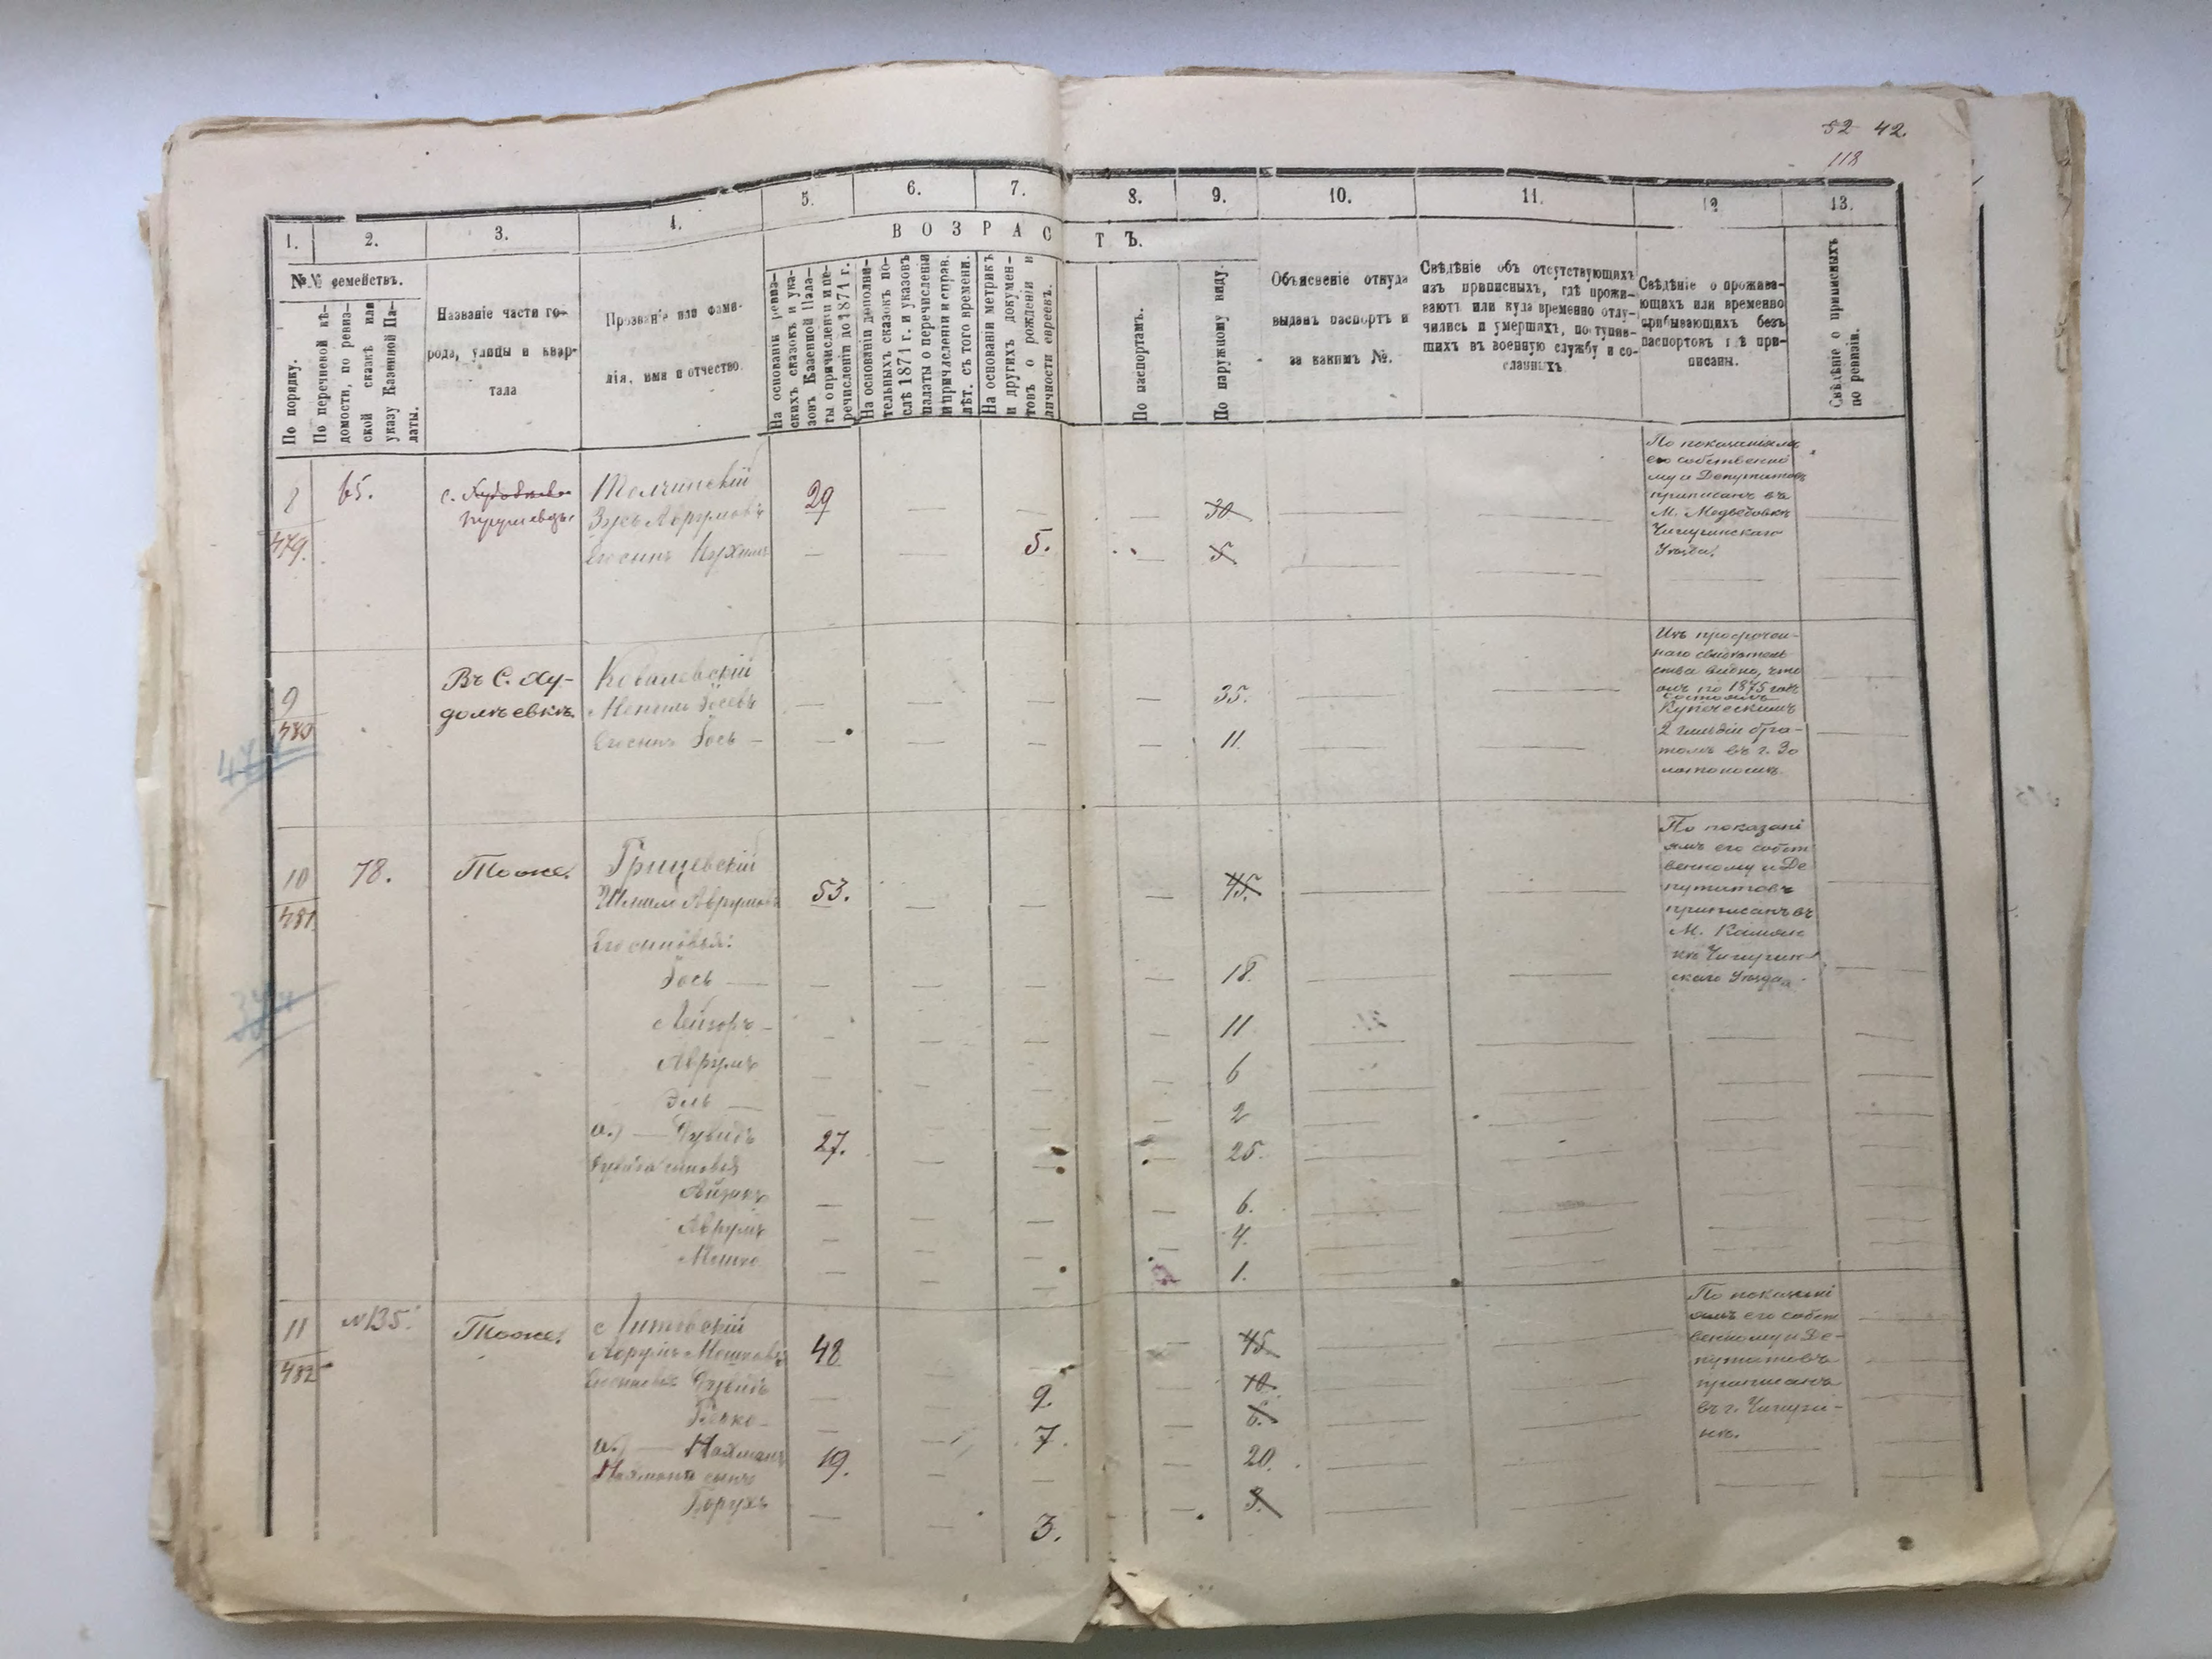 52 42.
118
1. 2. 3. 4. 5. 6. 7. 8. 9. 10. 11. 12 13.
ВОЗРАСТЪ.
№№ семействъ.
По порядку.
По перечневой вѣ-
домости, по ревиз-
ской сказкѣ или
указу Казенной Па-
латы.
Названіе части го-
рода, улицы и квар-
тала
Прозваніе или фами-
лія, имя и отчество.
На основаніи ревиз-
скихъ сказокъ и ука-
зовъ Казенной Пала-
ты о причисленіи и пе-
речисленіи до 1871 г.
На основаніи дополни-
тельныхъ сказокъ по-
слѣ 1871 г. и указовъ
палаты о перечисленіи
и причисленіи и справ.
лѣт. съ того времени.
На основаніи метрикъ
и другихъ докумен-
товъ о рожденіи и
личности евреевъ.
По паспортамъ.
По наружному виду.
Объясненіе откуда
выданъ паспортъ и
за какимъ №.
Свѣдѣніе объ отсутствующихъ
изъ приписныхъ, гдѣ прожи-
ваютъ или куда временно отлу-
чились и умершихъ, поступив-
шихъ въ военную службу и со-
сланныхъ.
Свѣдѣніе о прожива-
ющихъ или временно
прибывающихъ безъ
паспортовъ гдѣ при-
писаны.
Свѣдѣніе о приписныхъ
по ревизіи.
8
479.
65.
с.
29 30
Авруmовъ
Его сынъ 5. 5
По показаніямъ
его собственно
му и Депутатовъ
приписанъ въ
М. Медвѣдовкѣ
Чигиринскаго
Уѣзда.
9
480
Въ С. Ху-
долѣевкѣ.
Ковалевскій
Іосевъ 35.
Его сынъ Іось 11.
Изъ просрочен-
наго свидѣтель
ства видно, что
онъ по 1875 годъ
состоялъ
Купеческимъ
2 гильдіи бра-
томъ въ г. Зо
лотоношѣ.
10
481
78.
Тоже.
Грицевскій
Шмилъ Аврумовъ 53. 45.
Его сыновья:
Іось 18.
Лейзоръ 11
Аврумъ 6
Эль 2
а.) Дувидъ 27. 25.
Дувида сыновья
Айзикъ 6.
Аврумъ 4.
Мошко 1.
По показані
ямъ его собст
венному и Де
путатовъ
приписанъ въ
М. Камян
кѣ Чигирин
скаго Уѣзда.
11
482
№135.
Тоже.
Литовскій
Аврумъ Мошковъ 48 45
Его сыновья Дувидъ 9. 10.
Берко 7. 6.
а.) Нахманъ 19. 20.
Нахмана сынъ
Борухъ 3. 3.
По показані
ямъ его собст
венному и Де-
путатовъ
приписанъ
въ г. Чигири-
нѣ.